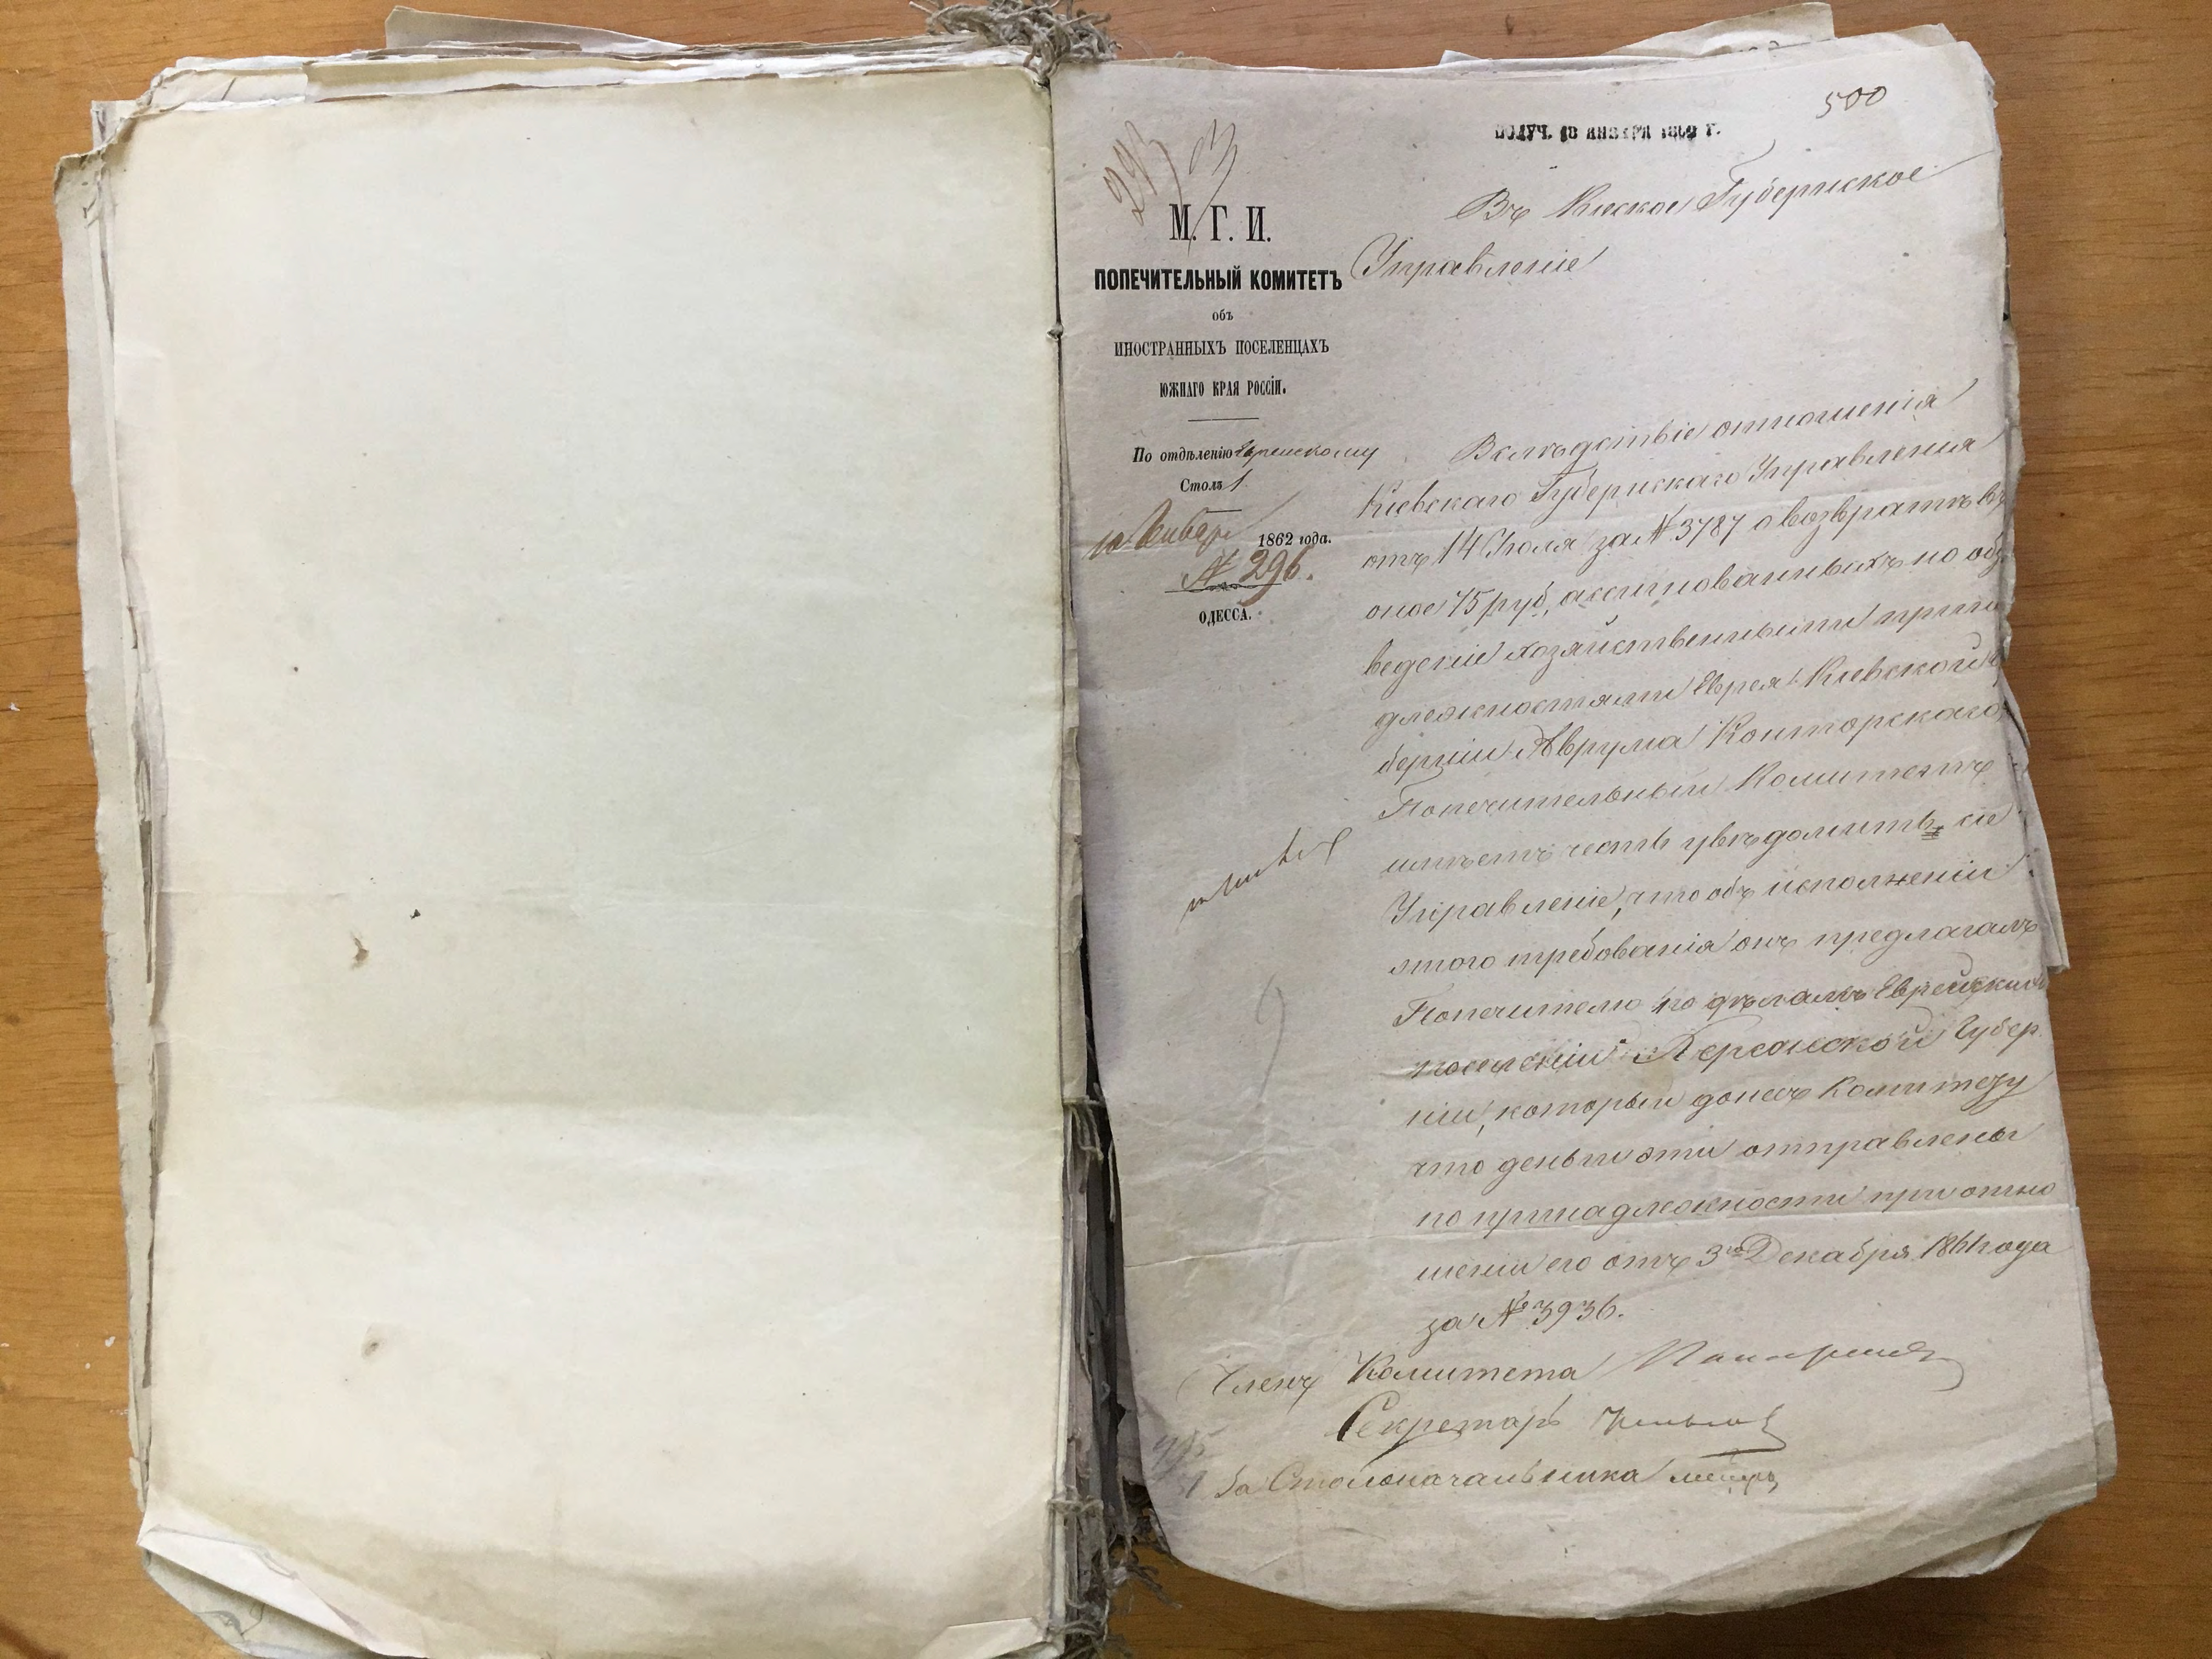 500
ПОЛУЧ. 18 ЯНВАРЯ 1862 Г.
293
М. Г. И.
ПОПЕЧИТЕЛЬНЫЙ КОМИТЕТЪ
объ
ИНОСТРАННЫХЪ ПОСЕЛЕНЦАХЪ
ЮЖНАГО КРАЯ РОССІИ.
По отдѣленію Еврейскому
Столъ 1.
10 Января 1862 года.
№ 296.
ОДЕССА.
Въ Киское Губернское
Управленіе
Вслѣдствіе отношенія
Кіевскаго Губернскаго Управленія
отъ 14 Іюля за № 3787 о возвратѣ въ
оное 75 руб, ассигнованныхъ по об
веденіе хозяйственными прина
длежностями Еврея Кіевской Гу
берніи Аврума Конторскаго,
Попечительный Комитетъ
имѣетъ честь увѣдомить сіе
Управленіе, что объ исполненіи
этого требованія онъ предлагалъ
Попечителю по дѣламъ Еврейскихъ
поселеній Херсонской Губер
ніи, который донесъ Комитету
что деньги эти отправлены
по принадлежности при отно
шеніи его отъ 3го Декабря 1861 года
за № 3936.
Членъ Комитета
Секретарь
За Столоначальника